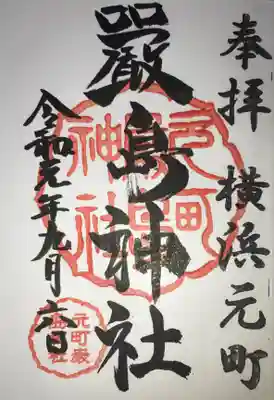 奉拝 横浜元町
嚴島神社
令和元年九月六日
元町嚴
島神社